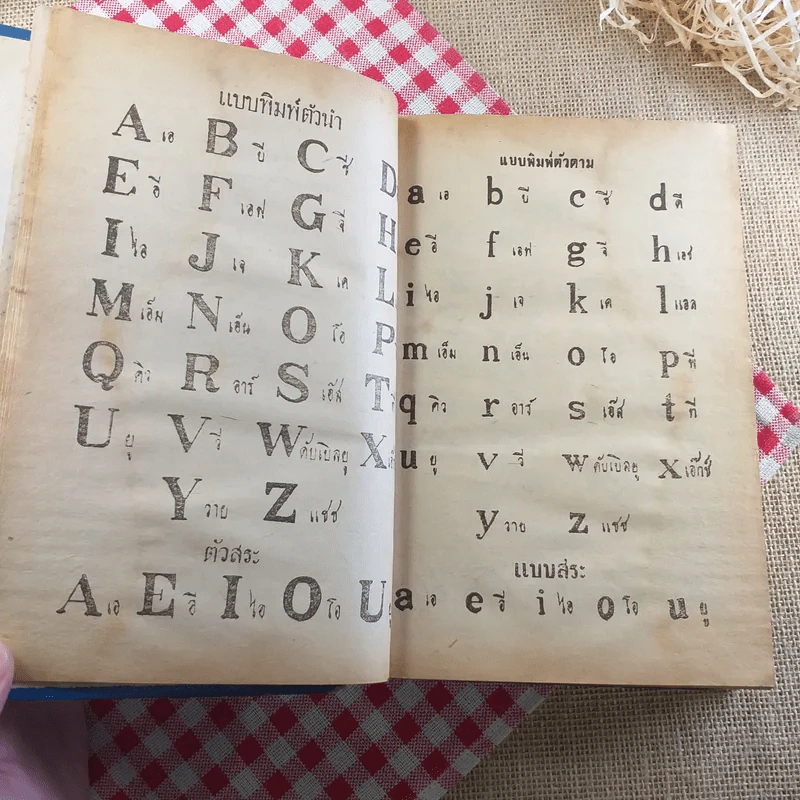 แบบพิมพ์ตัวนำ
A เอ B บี C ซี D
E อี F เอฟ G จี H
I ไอ J เจ K เค L
M เอ็ม N เอ็น O โอ P
Q คิว R อาร์ S เอ๊ส T
U ยู V วี W ดับเบิลยู X
Y วาย Z แซซ
ตัวสระ
A เอ E อี I ไอ O โอ U
แบบพิมพ์ตัวตาม
a เอ b บี c ซี d ดี
e อี f เอฟ g จี h เอช
i ไอ j เจ k เค l แอล
m เอ็ม n เอ็น o โอ p พี
q คิว r อาร์ s เอ๊ส t ที
u ยู v วี w ดับเบิลยู x เอ๊กซ์
y วาย z แซซ
แบบสระ
a เอ e อี i ไอ o โอ u ยู